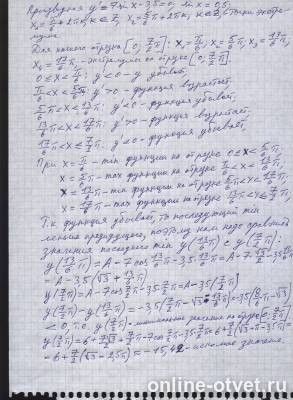 Производная y'=7sin x-3,5=0, sin x=0,5;
x₁=π/6+2πn, n∈Z, x₂=5/6π+2πn, n∈Z, - точки экстре-
мума
Для нашего отрезка [0; 7/2π]: x₁=π/6; x₂=5/6π, x₃=13/6π,
x₄=17/6π - экстремумы на отрезке [0; 7/2π]
0≤x<π/6: y'<0 - y убывает,
π/6<x<5/6π: y'>0 - функция возрастает.
5/6π<x<13/6π: y'<0 - функция убывает,
13/6π<x<17/6π: y'>0 - функция возрастает.
17/6π<x≤7/2π: y'<0 - функция убывает,
При x=π/6 - min функции на отрезке 0<x≤5/6π
x=5/6π - max функции на отрезке π/6<x<13/6π,
x=13/6π - min функции на отрезке 5/6π<x<17/6π,
x=17/6π - max функции на отрезке 13/6π<x≤7/2π,
Т.к. функция убывает, то последующий min
меньше предыдущего, поэтому нам надо сравнить
значения последнего min y(13/6π) с y(7/2π):
y(13/6π)=A-7cos13/6π-3,5·13/6π=A-7√3/2-3,5·13/6π=
=A-3,5(√3+13/6π)
y(7/2π)=A-7cos7/2π-3,5·7/2π=A-3,5(7/2π)
y(7/2π)-y(13/6π)=
<0, т.е. y(7/2π) - значение на отрезке [0; 7/2π]
=-15,42 - искомое значение.
online-otvet.ru